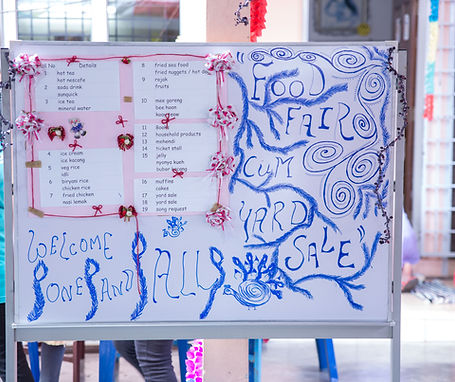 No Details
1 hot tea
hot nescafe
2 soda drink
sunquick
3 ice tea
mineral water
4 ice cream
ice kacang
5 veg rice
idli
6 rice
chicken rice
7 fried chicken
nasi lemak
8 fried sea food
fried nuggets / hot
9 rojak
fruits
10 mee goreng
bee hoon
11
12 household products
13 mehendi
14 ticket stall
15 jelly
nyonya kueh
bubur
16 muffins
cakes
17 yard sale
18 yard sale
19 song request
"FOOD
FAIR
CUM
YARD
SALE"
WELCOME
ONE AND ALL